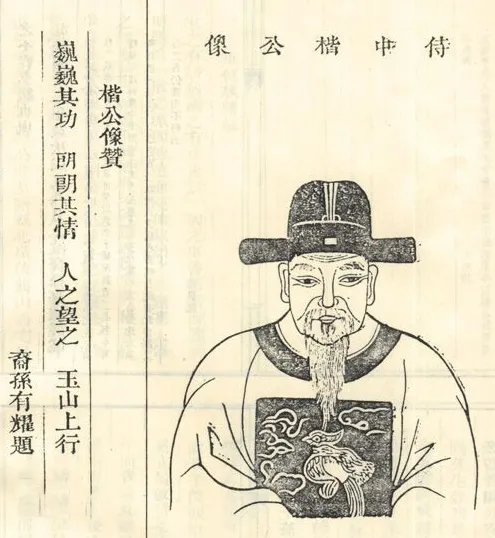 侍中楷公像
楷公像贊
巍巍其功 朙朙其情 人之望之 玉山上行
裔孫有耀題